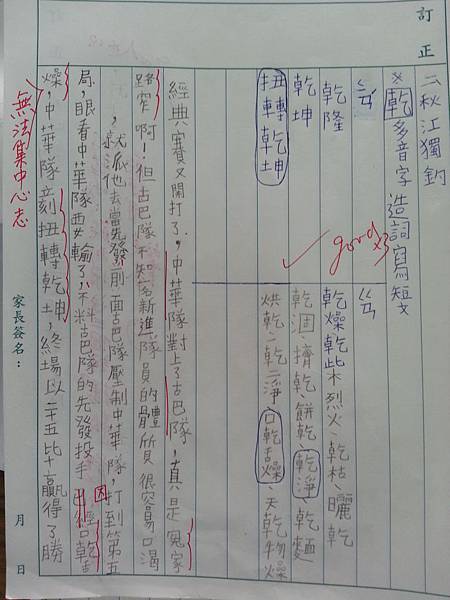 訂正
二、秋江獨釣
※乾多音字 造詞寫短文
ㄑㄧㄢˊ
ㄍㄢ
乾隆
乾燥、乾柴烈火、乾枯、曬乾
乾坤
乾涸、擠乾、餅乾、乾淨、乾麵
扭轉乾坤
烘乾、一乾二淨、口乾舌燥、天乾物燥
good
x3
經典賽又開打了,中華隊對上了古巴隊,真是冤家
路窄啊!但古巴隊不知名新進隊員的體質很容易口渴
,就派他去當先發,前面古巴隊壓制中華隊,打到第五
局,眼看中華隊要輸了,不料古巴隊的先發投手因口乾舌
燥,中華隊刻扭轉乾坤,終場以二十五比十贏得了勝
無法集中心志
家長簽名:
月
日